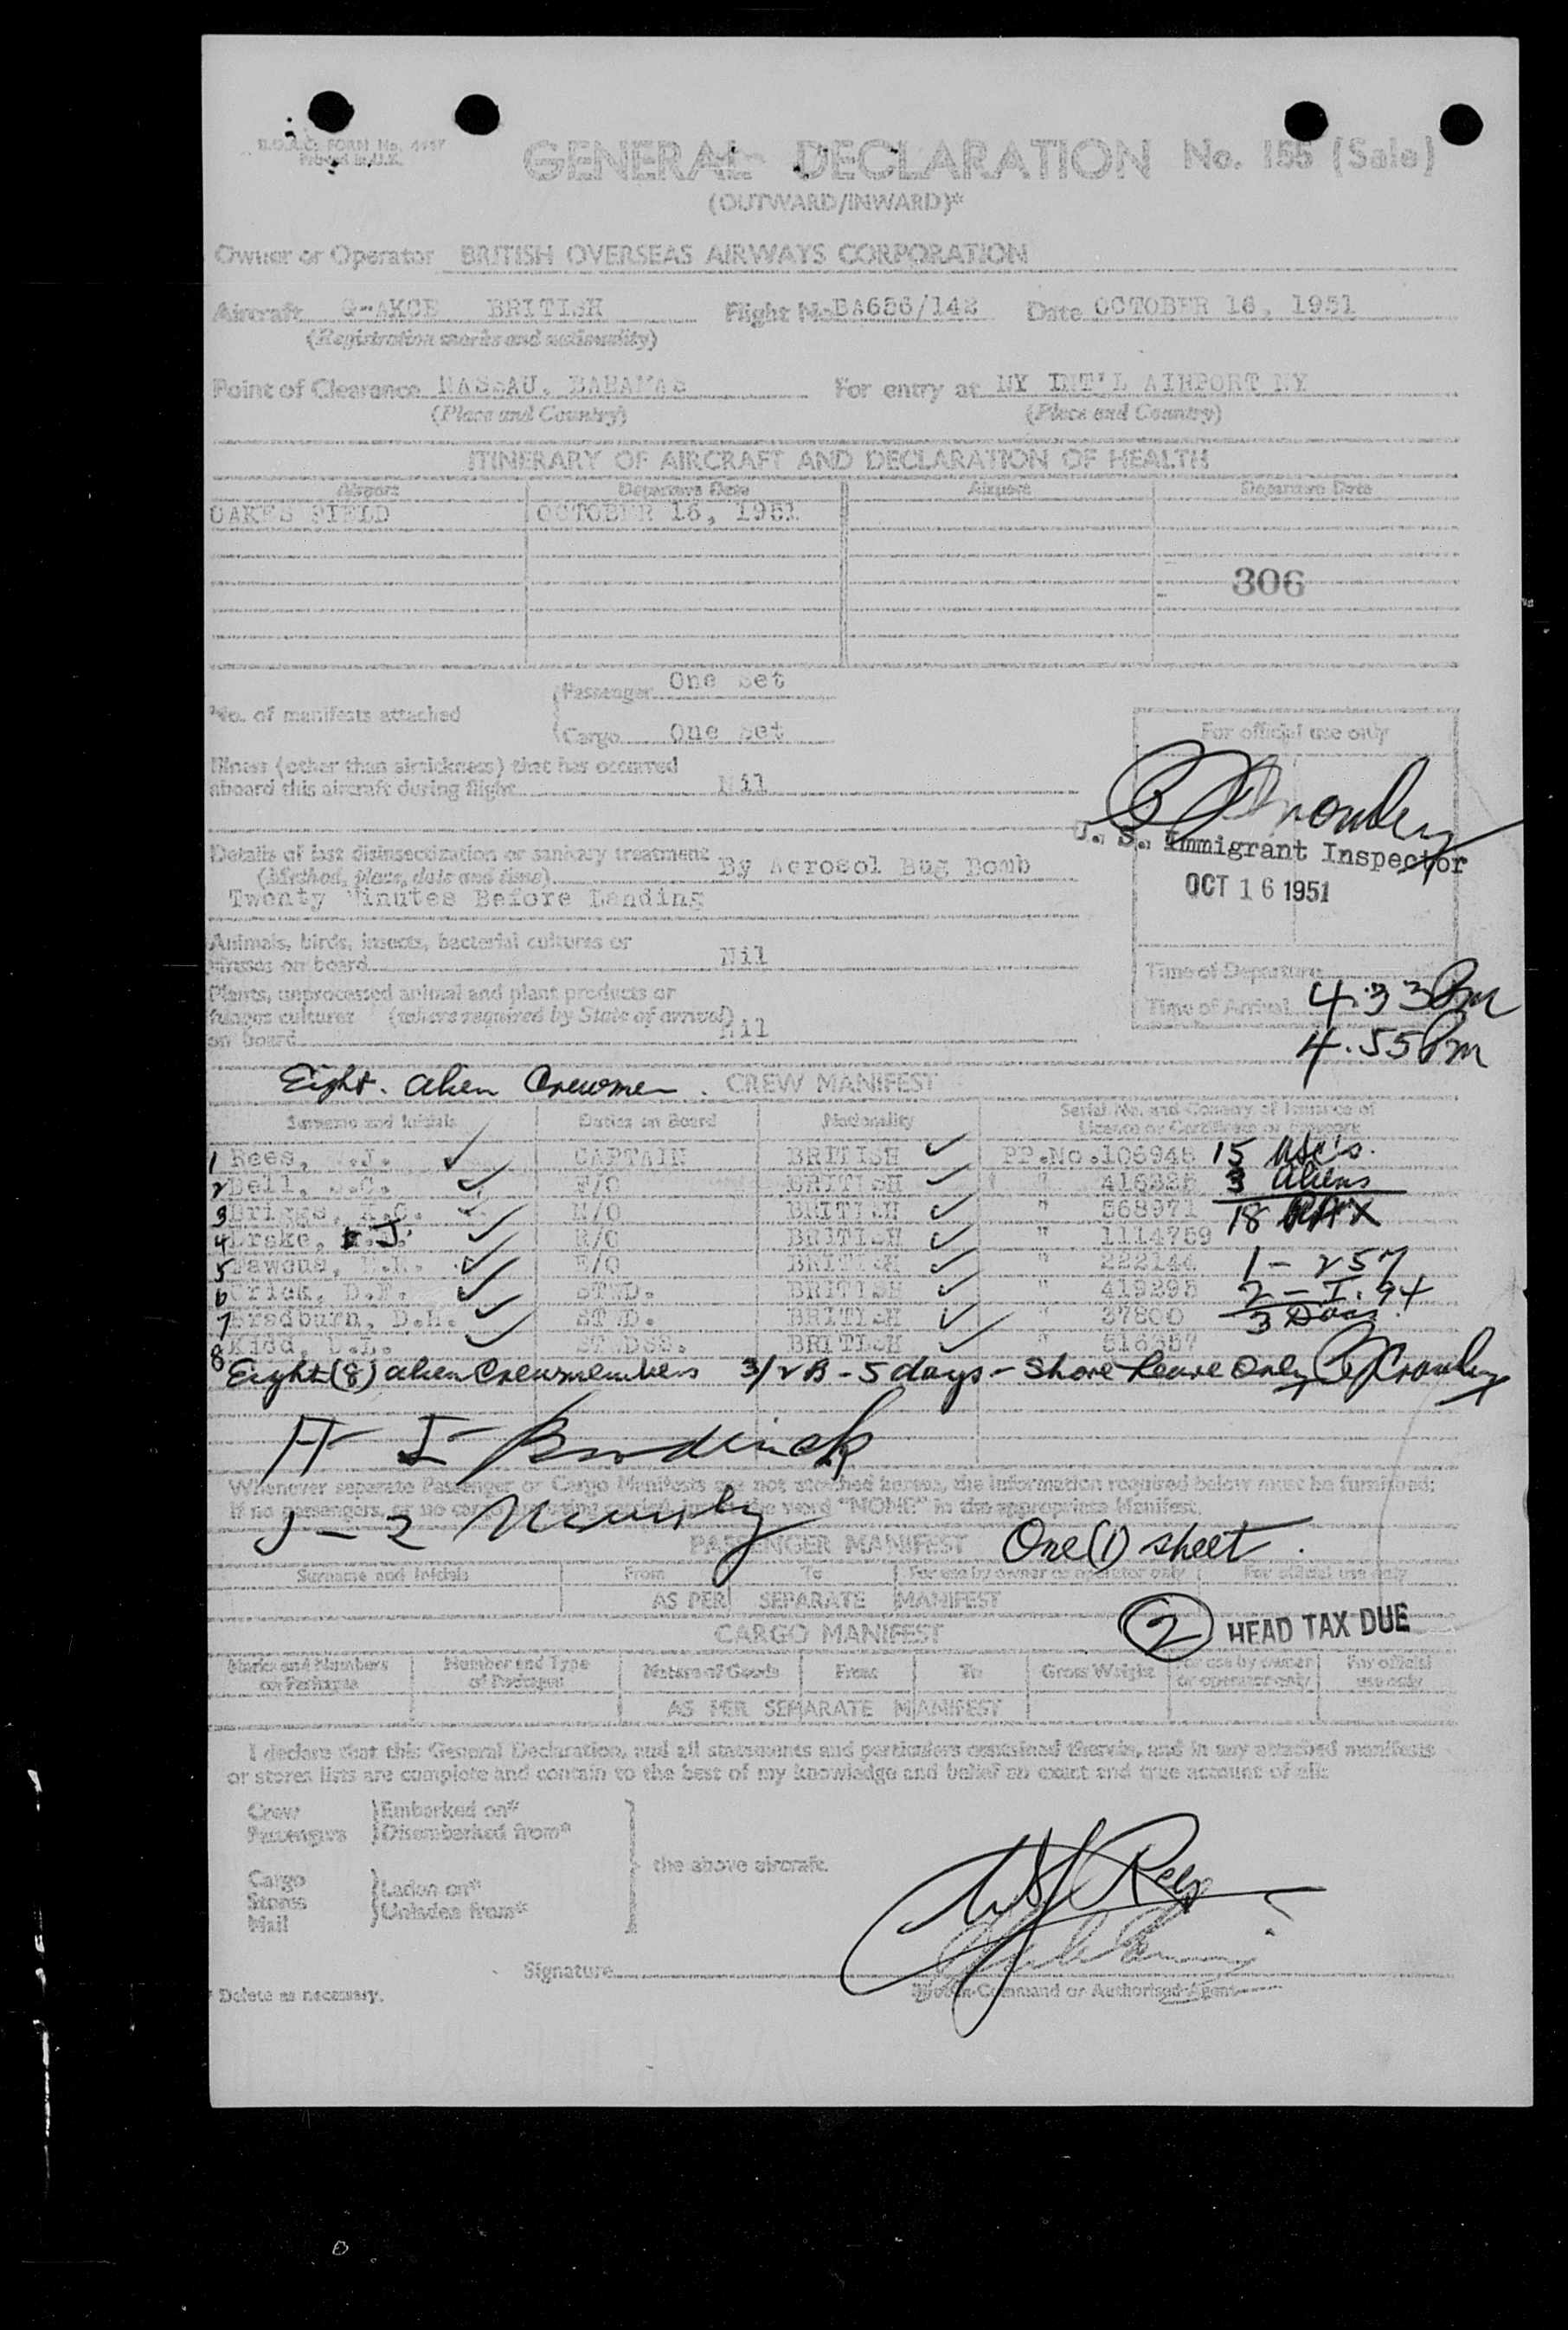 B.O.A.C. FORM No. 4457
Printed in U.K.
GENERAL DECLARATION No. 155 (Sale)
(OUTWARD/INWARD)*
Owner or Operator BRITISH OVERSEAS AIRWAYS CORPORATION
Aircraft G-AKCE BRITISH Flight No. BA656/142 Date OCTOBER 16, 1951
(Registration marks and nationality)
Point of Clearance NASSAU, BAHAMAS For entry at NY INT'L AIRPORT NY
(Place and Country) (Place and Country)
ITINERARY OF AIRCRAFT AND DECLARATION OF HEALTH
Airport Departure Date Airport Departure Date
OAKES FIELD OCTOBER 16, 1951
306
Passenger One Set
No. of manifests attached
Cargo One Set
For official use only
Illness (other than airsickness) that has occurred
aboard this aircraft during flight Nil
U. S. Immigrant Inspector
OCT 16 1951
Details of last disinsectization or sanitary treatment
(Method, place, date and time) By Aerosol Bug Bomb
Twenty Minutes Before Landing
Animals, birds, insects, bacterial cultures or
viruses on board Nil
Time of Departure
Plants, unprocessed animal and plant products or
fungus cultures (where required by State of arrival)
on board Nil
Time of Arrival 4:33 Pm
4.55 Pm
Eight. alien Crewmen. CREW MANIFEST
Surname and Initials Duties on Board Nationality Serial No. and Country of Issuance of
Licence or Certificate or Passport
1 Rees, W.J. CAPTAIN BRITISH PP.No.106946 15 USC's.
2 Bell, F/O BRITISH " 416325 3 aliens
3 Briggs, N/O BRITISH " 568971 18 PAX
4 Drake, J. R/O BRITISH " 1114759
5 E/O BRITISH " 222144 1 - 257
6 Crick, D.F. STWD. BRITISH " 419295 2 - I. 94
7 Bradburn, D.H. STWD. BRITISH " 37800 3 Docs.
8 Kidd, D.E. STWDSS. BRITISH " 516357
Eight (8) alien Crewmembers 3/2 B - 5 days - Shore Leave Only
Whenever separate Passenger or Cargo Manifests are not attached hereto, the information required below must be furnished;
If no passengers, or no cargo are being carried, insert the word "NONE" in the appropriate Manifest.
PASSENGER MANIFEST One (1) sheet.
Surname and Initials From To For use by owner or operator only For official use only
AS PER SEPARATE MANIFEST
CARGO MANIFEST
2 HEAD TAX DUE
Marks and Numbers on Packages Number and Type of Packages Nature of Goods From To Gross Weight For use by owner or operator only For official use only
AS PER SEPARATE MANIFEST
I declare that this General Declaration, and all statements and particulars contained therein, and in any attached manifests
or stores lists are complete and contain to the best of my knowledge and belief an exact and true account of all:
Crew Embarked on*
Passengers Disembarked from*
the above aircraft.
Cargo
Stores Laden on*
Mail Unladen from*
W J Rees
Signature
* Delete as necessary.
Pilot-in-Command or Authorised Agent